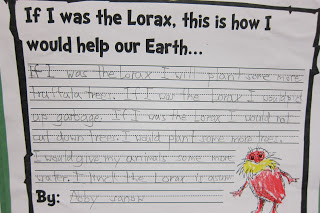 If I was the Lorax, this is how I
would help our Earth...
If I was the Lorax I will plant some more
truffula trees. If I was the Lorax I would
up garbage. If I was the Lorax I would not
cut down trees. I would plant some more trees.
I would give my animals some more
water. I the Lorax is
By: Abby